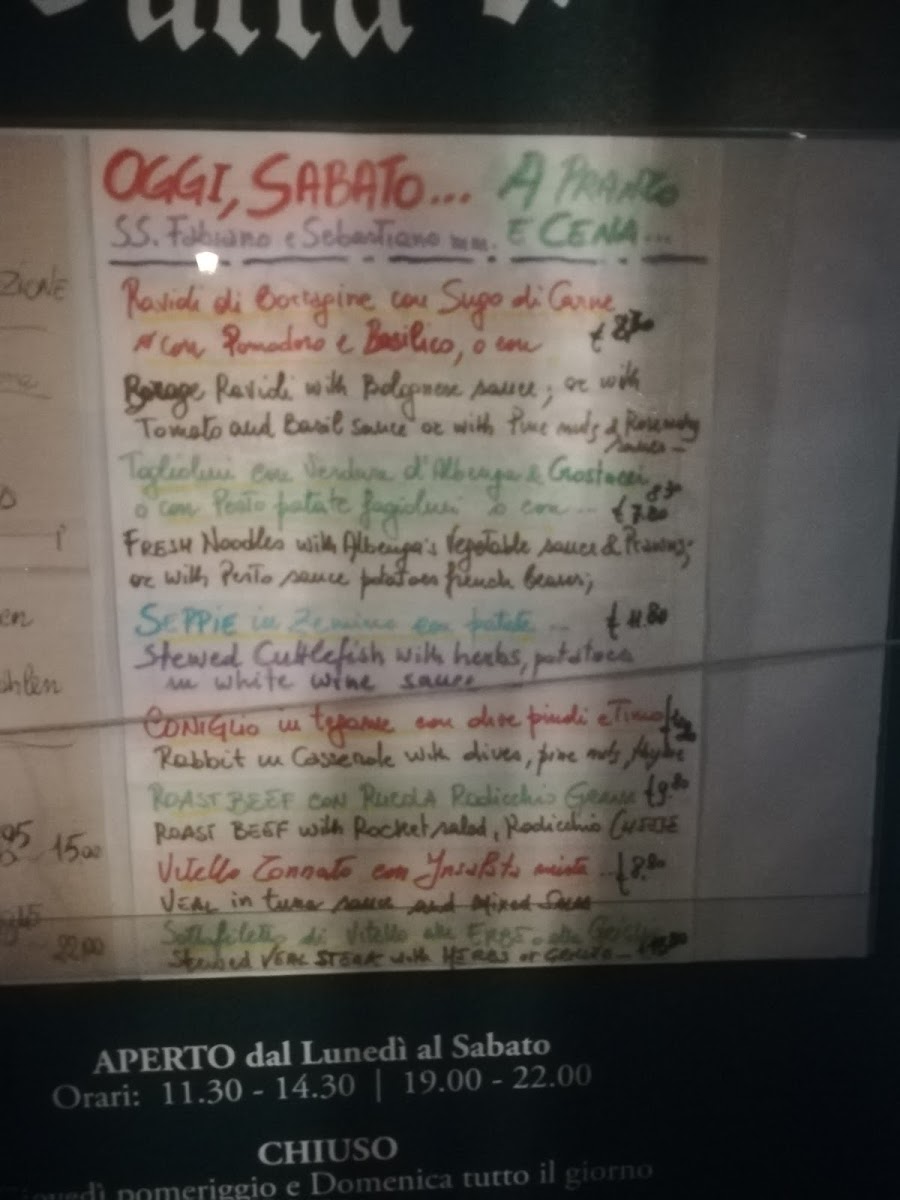 OGGI, SABATO... A PRANZO
SS. Fabiano e Sebastiano mm. E CENA...
ZIONE
Ravioli di Borragine con Sugo di Carne
con Pomodoro e Basilico, o con
Borage Ravioli with Bolognese sauce; or with
Tomato and Basil sauce or with Pine nuts & Rosemary
sauce -
Tagliolini con Verdure d'Albenga & Crostacei 8.30
o con Pesto patate fagiolini o con ... € 7.80
FRESH Noodles with Albenga's Vegetable sauce & Prawns;
or with Pesto sauce potatoes french beans;
en
SEPPIE in Zemino con patate ... € 11.80
Stewed Cuttlefish with herbs, potatoes
in white wine sauce
hlen
CONIGLIO in tegame con olive pinoli e Timo
Rabbit in Casserole with olives, pine nuts, thyme
ROAST BEEF CON RUCOLA Radicchio GRANA € 9.80
ROAST BEEF with Rocket salad, Radicchio CHEESE
15.00
Vitello Tonnato con Insalata mista ... € 8.80
VEAL in tuna sauce and Mixed Salad
22.00
Sottofiletto di Vitello alle ERBE o alla Griglia
Stewed VEAL STEAK with HERBS or GRILLED -
APERTO dal Lunedì al Sabato
Orari: 11.30 - 14.30 | 19.00 - 22.00
CHIUSO
pomeriggio e Domenica tutto il giorno